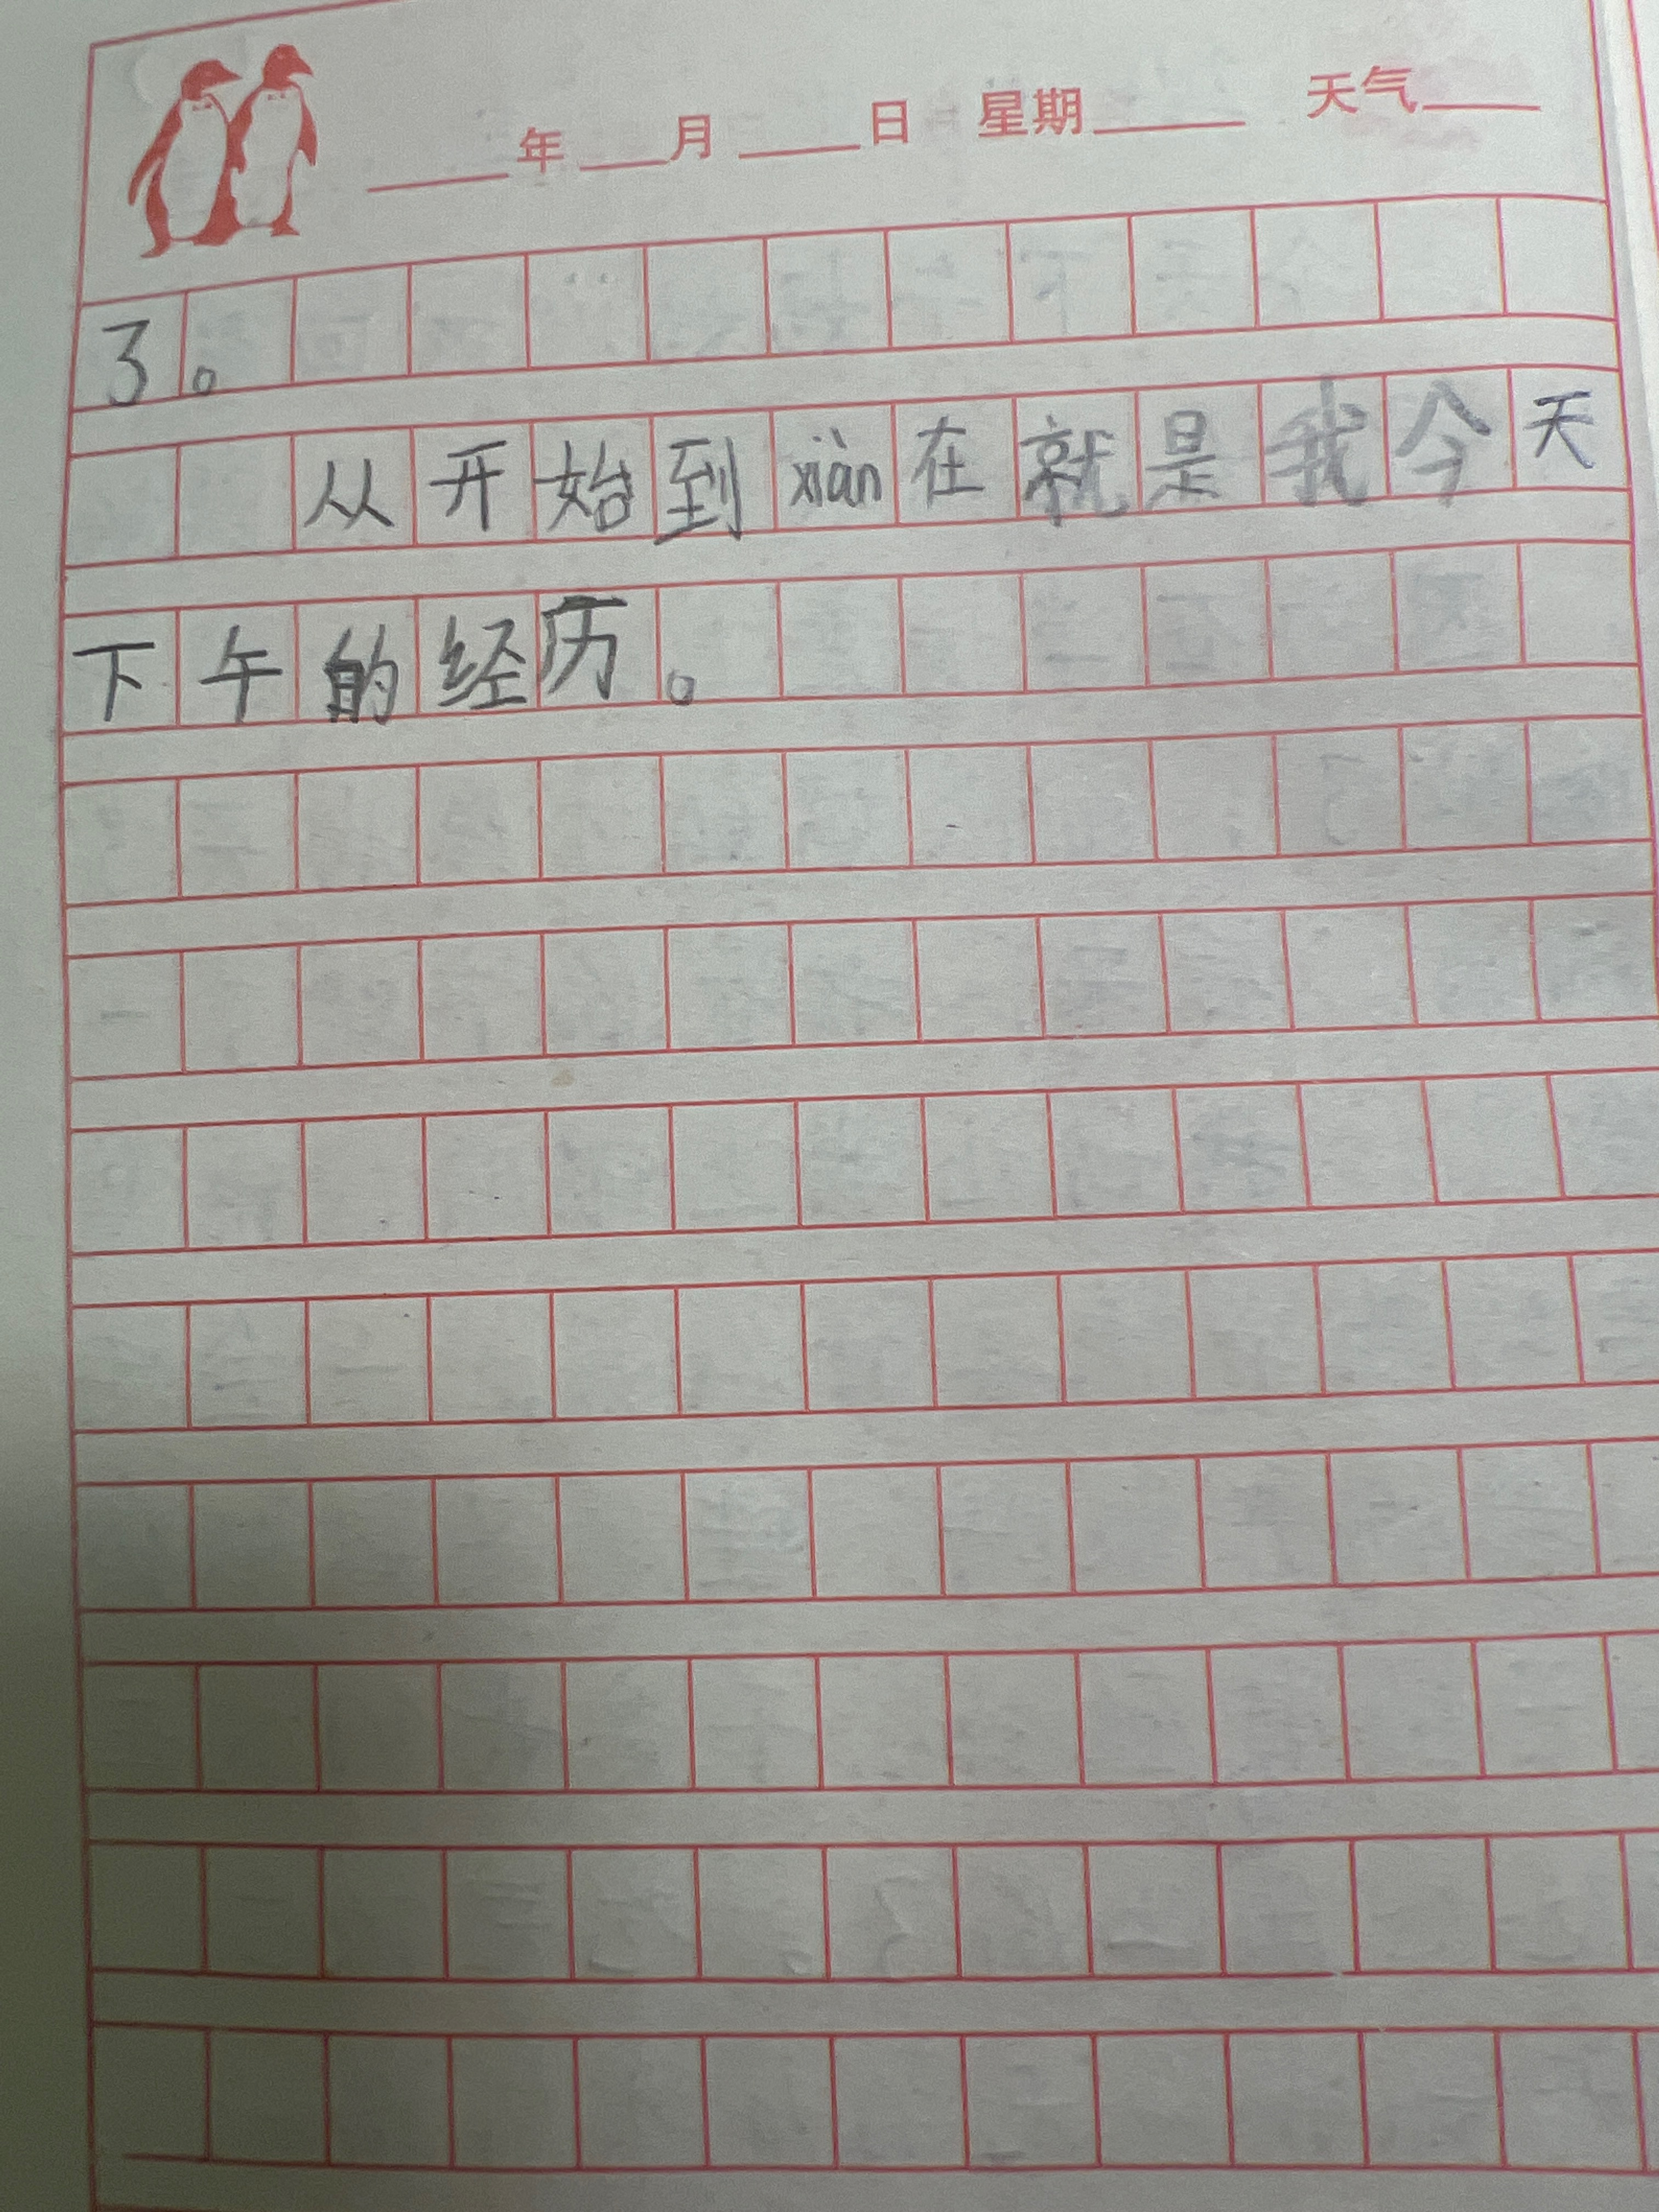 年 月 日 星期 天气
了。
从开始到xiàn在就是我今天
下午的经历。